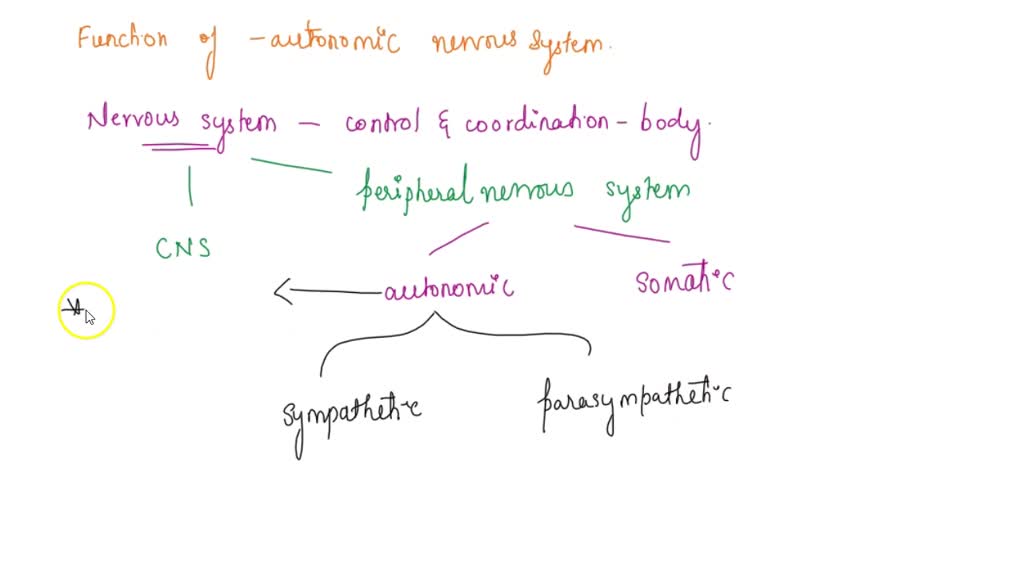 Function of - autonomic nervous system.
Nervous system - control & coordination - body.
peripheral nervous system
CNS
autonomic
somatic
sympathetic
parasympathetic